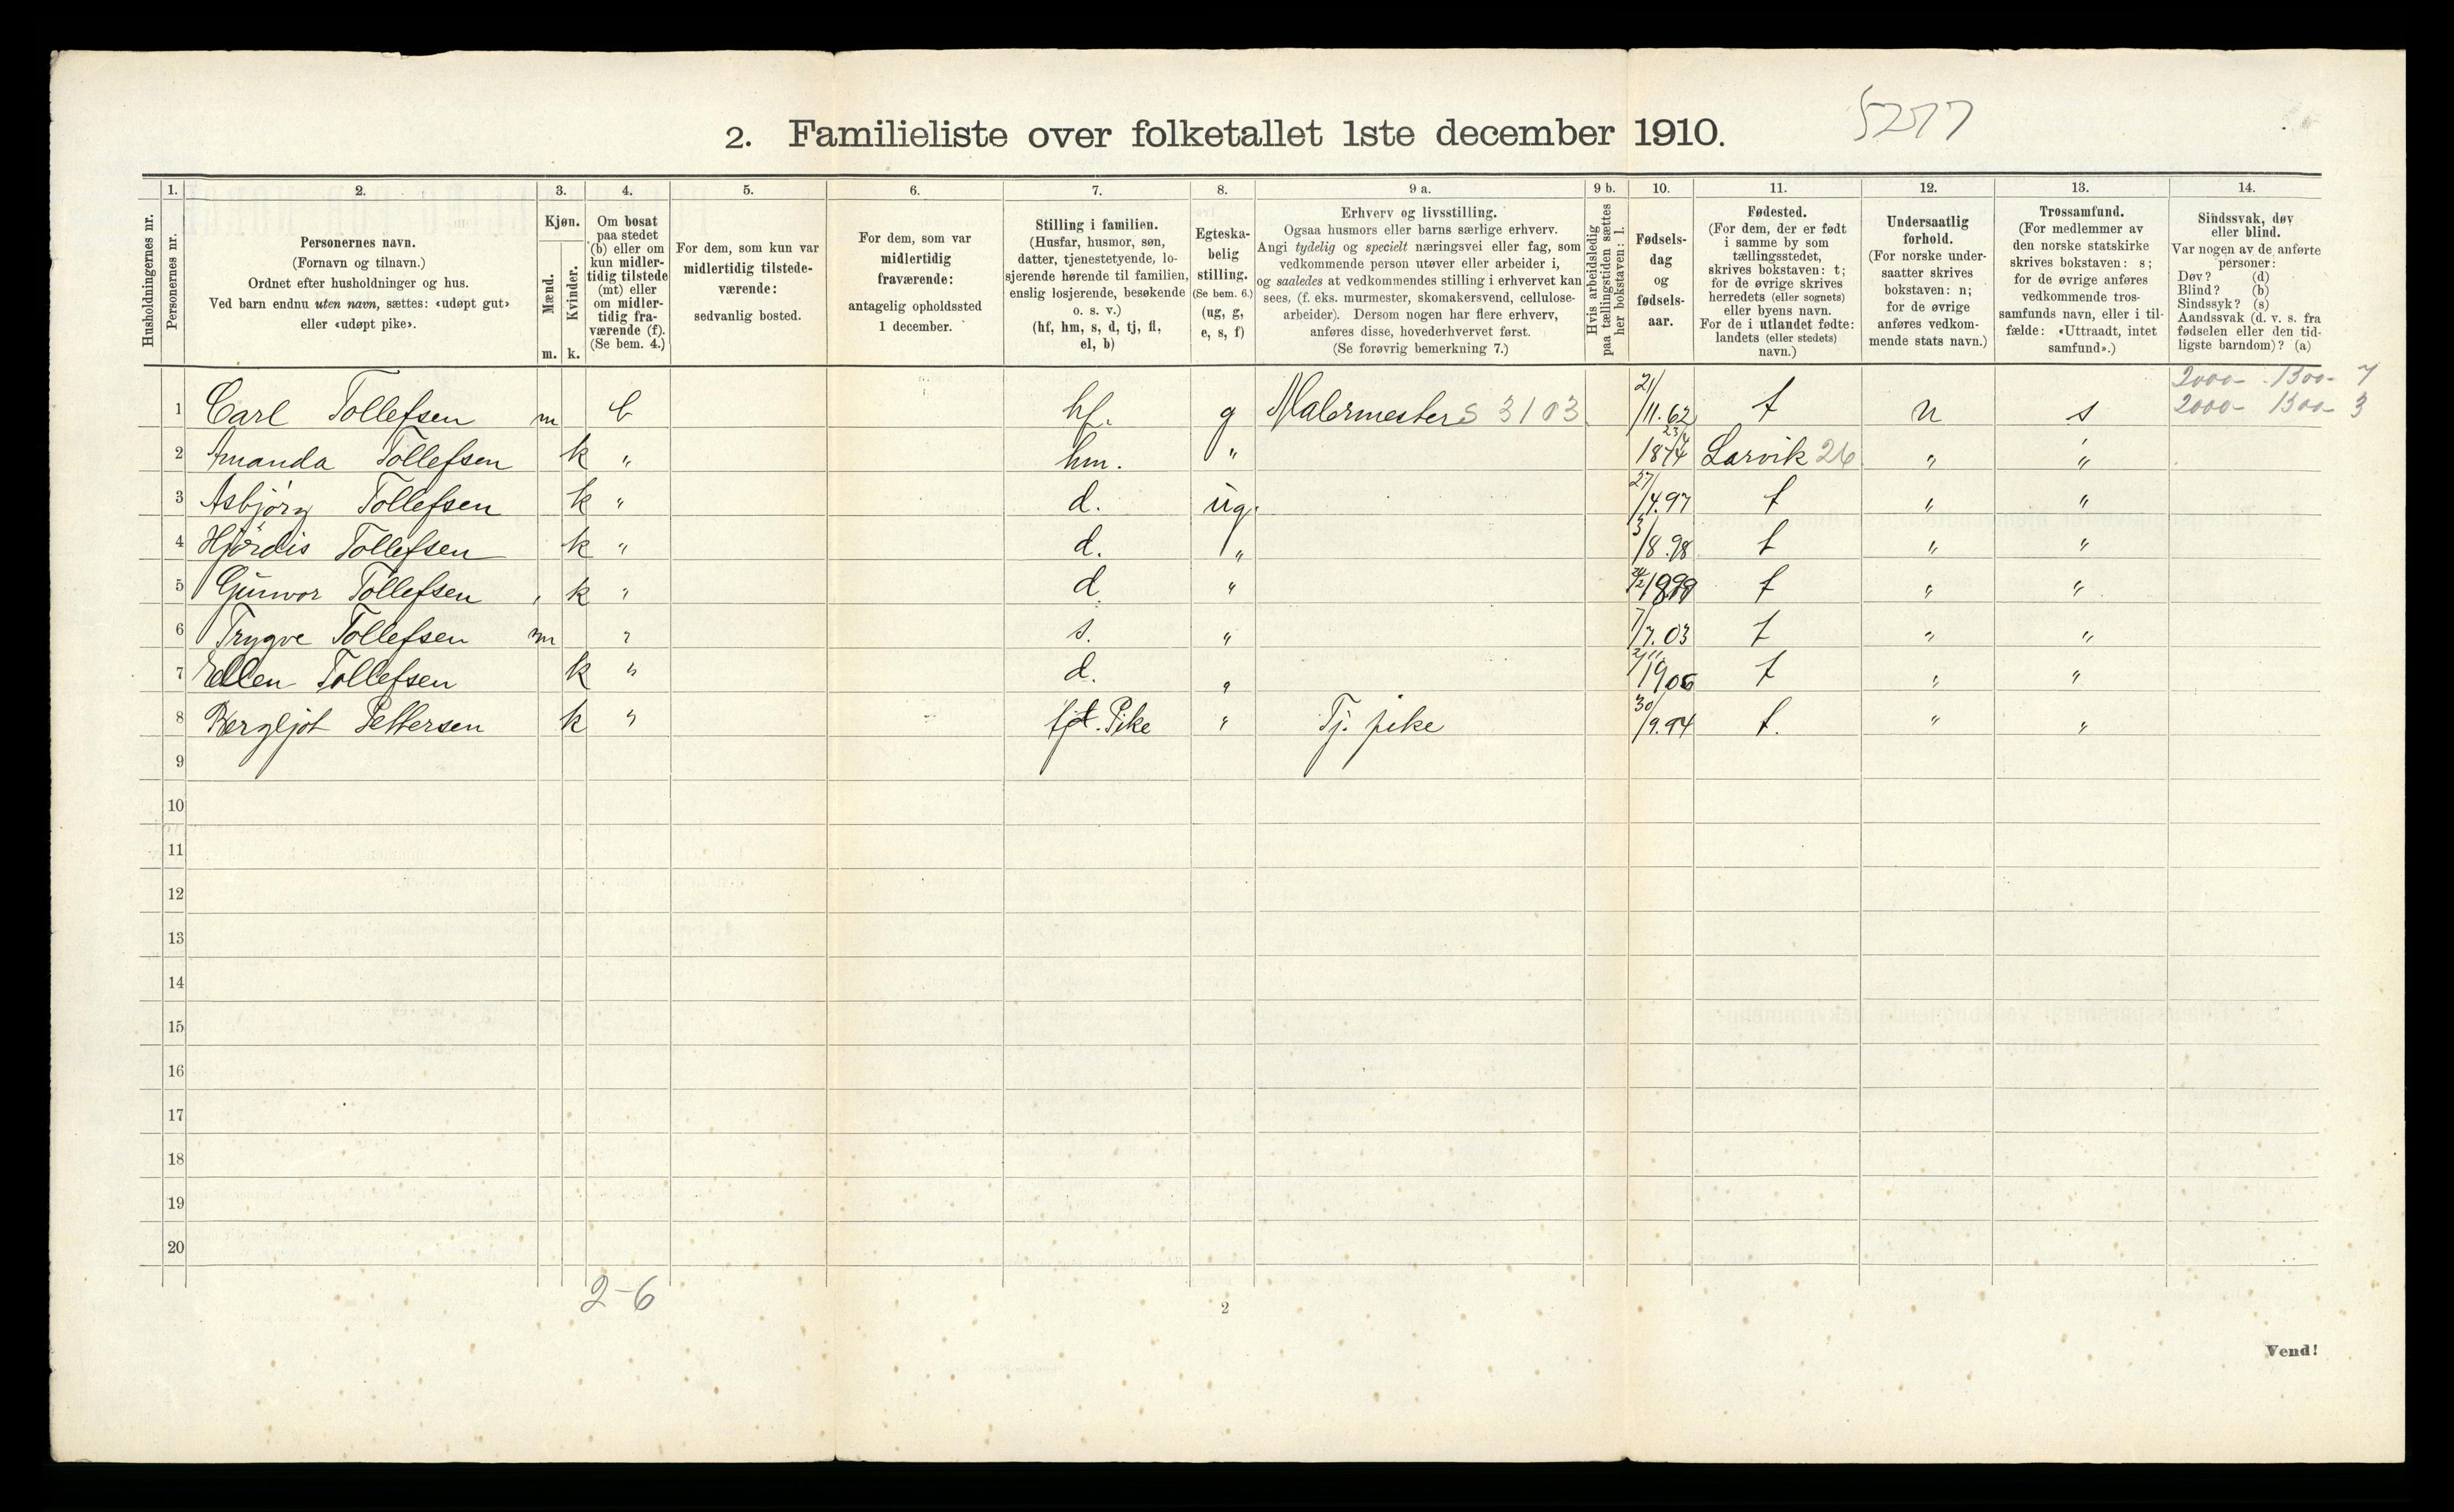 2. Familieliste over folketallet 1ste december 1910.
5277
Husholdningernes nr.
1. Personernes nr.
2. Personernes navn. (Fornavn og tilnavn.) Ordnet efter husholdninger og hus. Ved barn endnu uten navn, sættes: «udøpt gut» eller «udøpt pike».
3. Kjøn. Mænd. m. Kvinder. k.
4. Om bosat paa stedet (b) eller om kun midlertidig tilstede (mt) eller om midlertidig fraværende (f). (Se bem. 4.)
5. For dem, som kun var midlertidig tilstedeværende: sedvanlig bosted.
6. For dem, som var midlertidig fraværende: antagelig opholdssted 1 december.
7. Stilling i familien. (Husfar, husmor, søn, datter, tjenestetyende, losjerende hørende til familien, enslig losjerende, besøkende o. s. v.) (hf, hm, s, d, tj, fl, el, b)
8. Egteskabelig stilling. (Se bem. 6.) (ug, g, e, s, f)
9 a. Erhverv og livsstilling. Ogsaa husmors eller barns særlige erhverv. Angi tydelig og specielt næringsvei eller fag, som vedkommende person utøver eller arbeider i, og saaledes at vedkommendes stilling i erhvervet kan sees, (f. eks. murmester, skomakersvend, cellulosearbeider). Dersom nogen har flere erhverv, anføres disse, hovederhvervet først. (Se forøvrig bemerkning 7.)
9 b. Hvis arbeidsledig paa tællingstiden sættes her bokstaven: l.
10. Fødselsdag og fødselsaar.
11. Fødested. (For dem, der er født i samme by som tællingsstedet, skrives bokstaven: t; for de øvrige skrives herredets (eller sognets) eller byens navn. For de i utlandet fødte: landets (eller stedets) navn.)
12. Undersaatlig forhold. (For norske undersaatter skrives bokstaven: n; for de øvrige anføres vedkommende stats navn.)
13. Trossamfund. (For medlemmer av den norske statskirke skrives bokstaven: s; for de øvrige anføres vedkommende trossamfunds navn, eller i tilfælde: «Uttraadt, intet samfund».)
14. Sindssvak, døv eller blind. Var nogen av de anførte personer: Døv? (d) Blind? (b) Sindssyk? (s) Aandssvak (d. v. s. fra fødselen eller den tidligste barndom)? (a)
2000- 1300- 7
1 Carl Tollefsen m b hf. g Malermester S 3103 21/11.62 t n s 2000- 1300- 3
2 Amanda Tollefsen k " hm. " 1874 Larvik 26 " "
3 Asbjørg Tollefsen k " d. ug. 27/4.97 t " "
4 Hjørdis Tollefsen k " d. " 3/8.98 t " "
5 Gunvor Tollefsen k " d. " 1899 t " "
6 Trygve Tollefsen m " s. " 7/7.03 t " "
7 Ellen Tollefsen k " d. " 2/11 1906 t " "
8 Bergljot Pettersen k " tj. Pike " Tj. pike 30/9.94 t. " "
9
10
11
12
13
14
15
16
17
18
19
20
2-6
2
Vend!